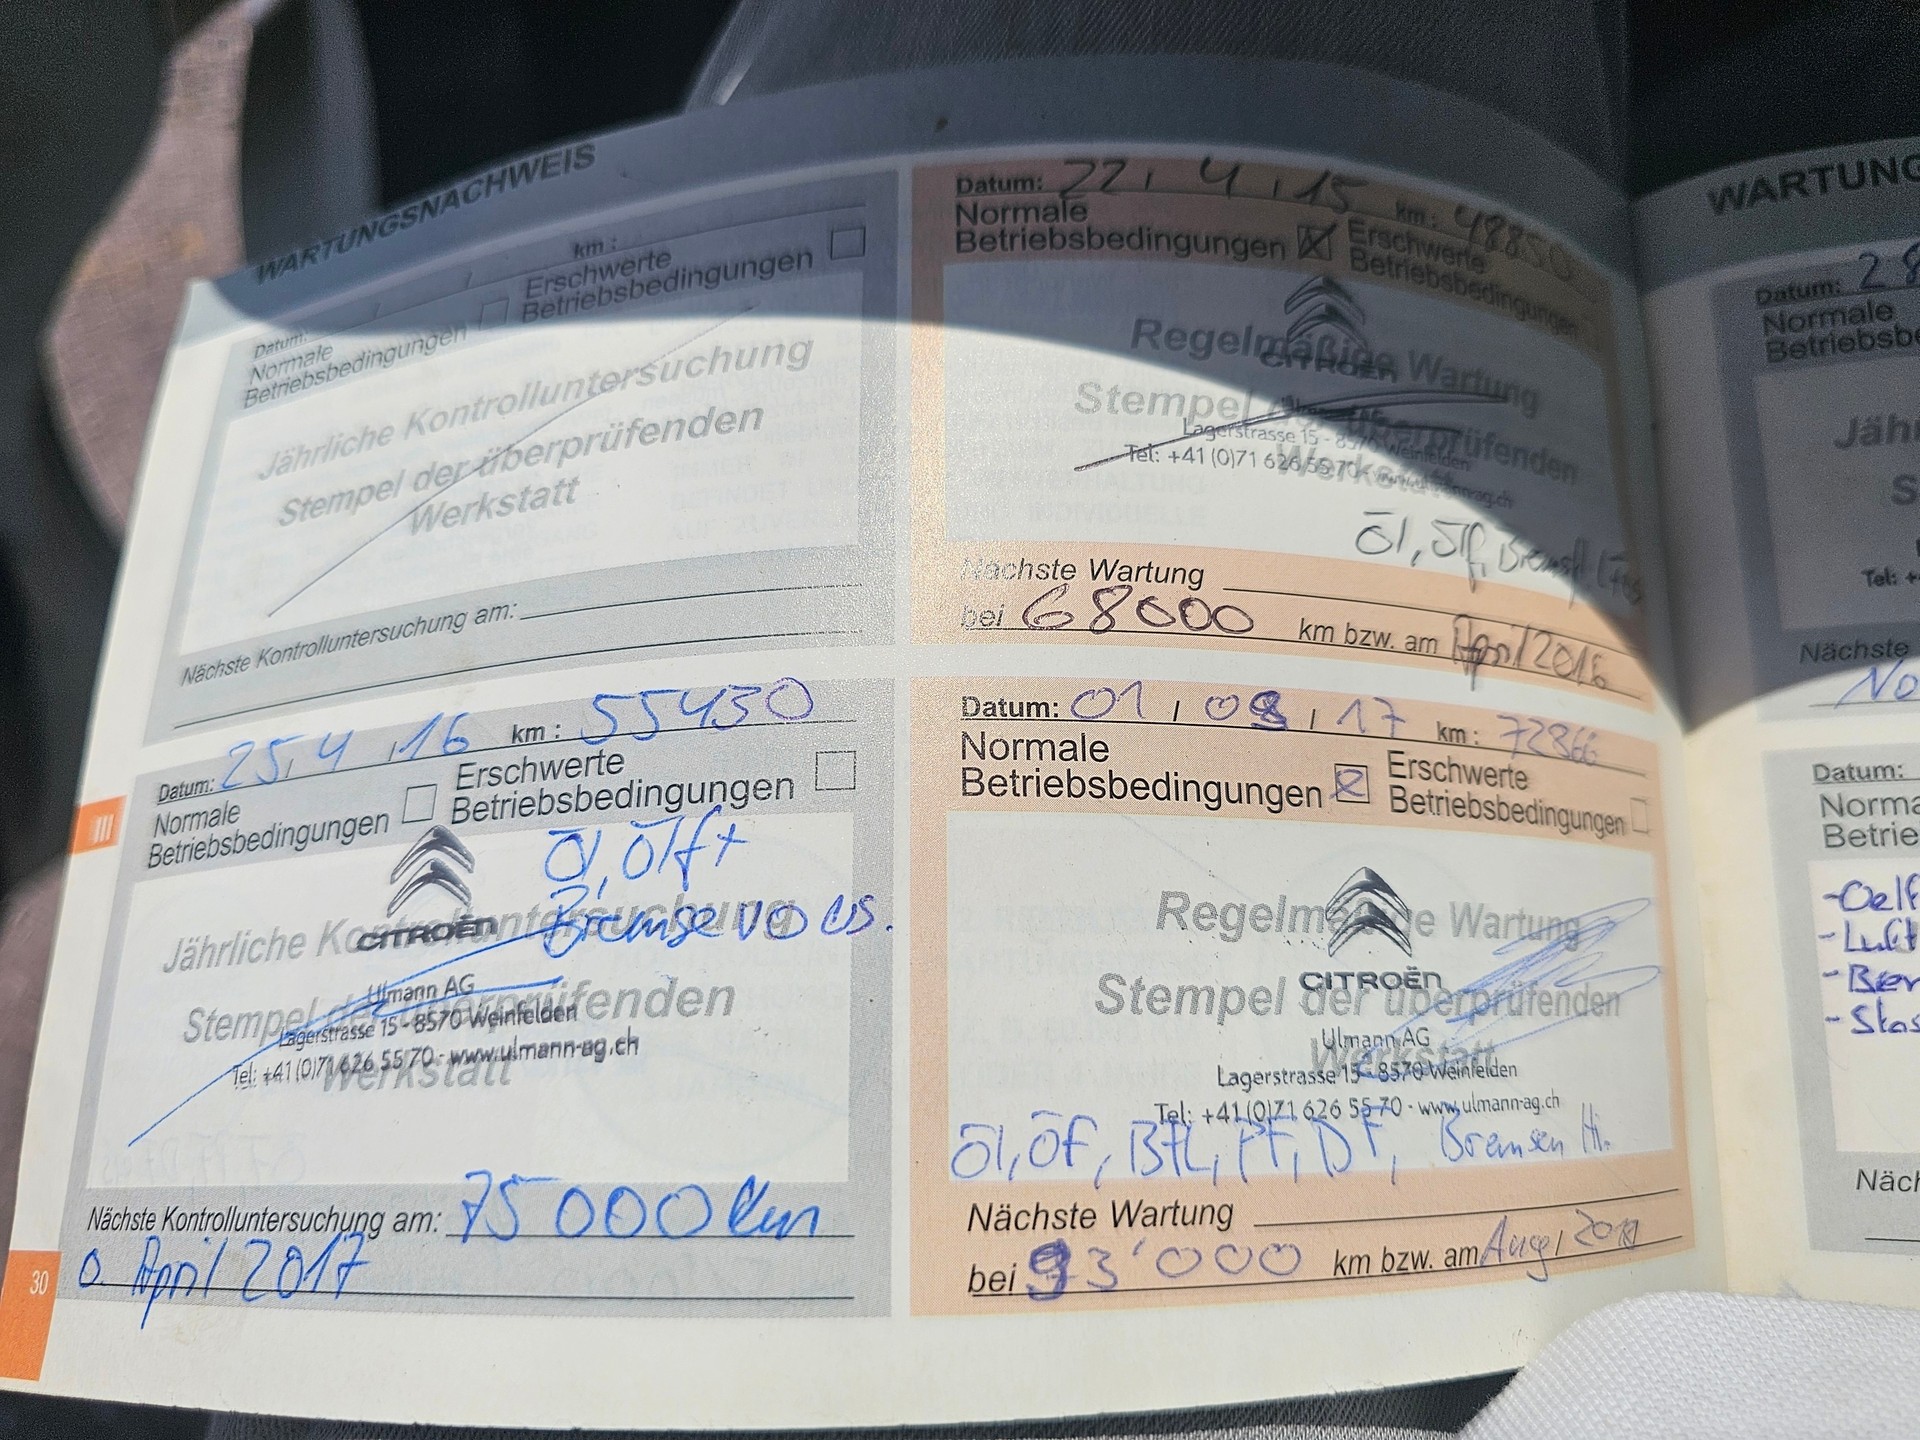 WARTUNGSNACHWEIS
Datum: / / km :
Normale Betriebsbedingungen
Erschwerte Betriebsbedingungen
Jährliche Kontrolluntersuchung
Stempel der überprüfenden
Werkstatt
Nächste Kontrolluntersuchung am:
Datum: 25, 4, 16 km : 55430
Normale Betriebsbedingungen
Erschwerte Betriebsbedingungen
Öl, Ölf +
Bremse vo
Jährliche Kontrolluntersuchung
CITROËN
Stempel der überprüfenden
Werkstatt
Ulmann AG
Lagerstrasse 15 - 8570 Weinfelden
Tel: +41 (0)71 626 55 70 - www.ulmann-ag.ch
Nächste Kontrolluntersuchung am: 75000 km
o. April 2017
III
30
Datum: 22, 4, 15 km : 48850
Normale Betriebsbedingungen
Erschwerte Betriebsbedingungen
Regelmäßige Wartung
CITROËN
Stempel der überprüfenden
Werkstatt
Lagerstrasse 15 - 8570 Weinfelden
Tel: +41 (0)71 626 55 70 - www.ulmann-ag.ch
Öl, Ölf,
Nächste Wartung
bei 68000 km bzw. am April 2016
Datum: 01 / 08 / 17 km : 72866
Normale Betriebsbedingungen
Erschwerte Betriebsbedingungen
Regelmäßige Wartung
CITROËN
Stempel der überprüfenden
Werkstatt
Ulmann AG
Lagerstrasse 15 - 8570 Weinfelden
Tel: +41 (0)71 626 55 70 - www.ulmann-ag.ch
Öl, ÖF, BFL, PF, DF, Bremsen Hi.
Nächste Wartung
bei 93'000 km bzw. am Aug.
WARTUNG
Datum: 28
Normale
Betriebsbe
Jähr
S
Tel: +
Nächste
No
Datum:
Norma
Betrie
-Oelf
-Luft
-Brem
-Stas
Näch